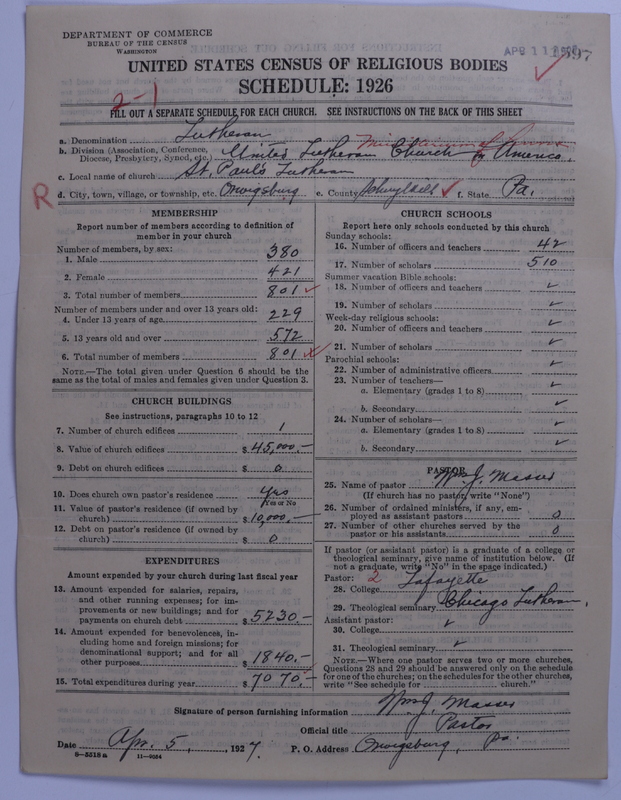 DEPARTMENT OF COMMERCE
BUREAU OF THE CENSUS
WASHINGTON
APR 11
UNITED STATES CENSUS OF RELIGIOUS BODIES
SCHEDULE: 1926
2-1
FILL OUT A SEPARATE SCHEDULE FOR EACH CHURCH. SEE INSTRUCTIONS ON THE BACK OF THIS SHEET
a. Denomination Lutheran
b. Division (Association, Conference, Diocese, Presbytery, Synod, etc.) United Lutheran Church in America.
c. Local name of church St. Paul's Lutheran
R
d. City, town, village, or township, etc. Orwigsburg e. County Schuylkill f. State Pa.
MEMBERSHIP
Report number of members according to definition of
member in your church
Number of members, by sex:
1. Male 380
2. Female 421
3. Total number of members 801
Number of members under and over 13 years old:
4. Under 13 years of age 229
5. 13 years old and over 572
6. Total number of members 801
NOTE.—The total given under Question 6 should be
same as the total of males and females given under Question 3.
CHURCH BUILDINGS
See instructions, paragraphs 10 to 12
7. Number of church edifices 1
8. Value of church edifices $ 45,000.—
9. Debt on church edifices $ 0
10. Does church own pastor's residence Yes
Yes or No
11. Value of pastor's residence (if owned by
church) $ 10,000.—
12. Debt on pastor's residence (if owned by
church) $ 0
EXPENDITURES
Amount expended by your church during last fiscal year
13. Amount expended for salaries, repairs,
and other running expenses; for im-
provements or new buildings; and for
payments on church debt $ 5230.—
14. Amount expended for benevolences, in-
cluding home and foreign missions; for
denominational support; and for all
other purposes $ 1840.—
15. Total expenditures during year $ 7070.—
CHURCH SCHOOLS
Report here only schools conducted by this church
Sunday schools:
16. Number of officers and teachers 42
17. Number of scholars 510
Summer vacation Bible schools:
18. Number of officers and teachers ✓
19. Number of scholars ✓
Week-day religious schools:
20. Number of officers and teachers ✓
21. Number of scholars ✓
Parochial schools:
22. Number of administrative officers ✓
23. Number of teachers—
a. Elementary (grades 1 to 8) ✓
b. Secondary ✓
24. Number of scholars—
a. Elementary (grades 1 to 8) ✓
b. Secondary ✓
PASTOR
25. Name of pastor Wm. J. Masser
(If church has no pastor, write "None")
26. Number of ordained ministers, if any, em-
ployed as assistant pastors 0
27. Number of other churches served by the
pastor or his assistants 0
If pastor (or assistant pastor) is a graduate of a college or
theological seminary, give name of institution below. (If
not a graduate, write "No" in the space indicated.)
Pastor: 2
28. College Lafayette
29. Theological seminary Chicago Lutheran
Assistant pastor:
30. College ✓
31. Theological seminary ✓
NOTE.—Where one pastor serves two or more churches,
Questions 28 and 29 should be answered only on the schedule
for one of the churches; on the schedules for the other churches,
write "See schedule for church."
Signature of person furnishing information Wm. J. Masser
Official title Pastor
Date Apr. 5, 1927. P. O. Address Orwigsburg, Pa.
6-5318a 11-8624